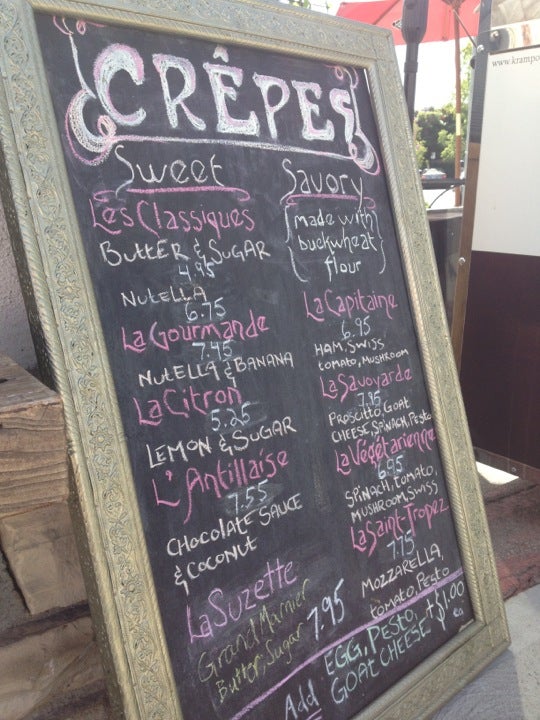 www.krampo
CRÊPES
Sweet
Les Classiques
Butter & Sugar
4.95
Nutella
6.75
La Gourmande
7.45
Nutella & Banana
La Citron
5.25
Lemon & Sugar
L'Antillaise
7.55
Chocolate Sauce
& Coconut
La Suzette
Grand Marnier
Butter, Sugar 7.95
Savory
{made with}
{buckwheat}
flour
La Capitaine
6.95
Ham, Swiss
tomato, mushroom
La Savoyarde
7.95
Proscitto, Goat
Cheese, Spinach, Pesto
La Végétarienne
6.95
Spinach, tomato,
Mushroom, Swiss
La Saint-Tropez
7.75
Mozzarella,
tomato, Pesto
Add Egg, Pesto, + $1.00
Goat Cheese ea.